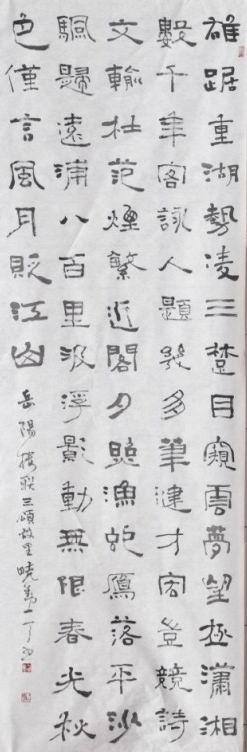 雄踞重湖勢凌三楚目窺雲夢望極瀟湘
數千年客詠人題幾多筆健才宏登競詩
文輸杜范煙繁近閣夕照漁落平沙
歸遠浦八百里浮影動無限春光秋
色僅言風月貶江山
岳陽樓聯三頌故里曉